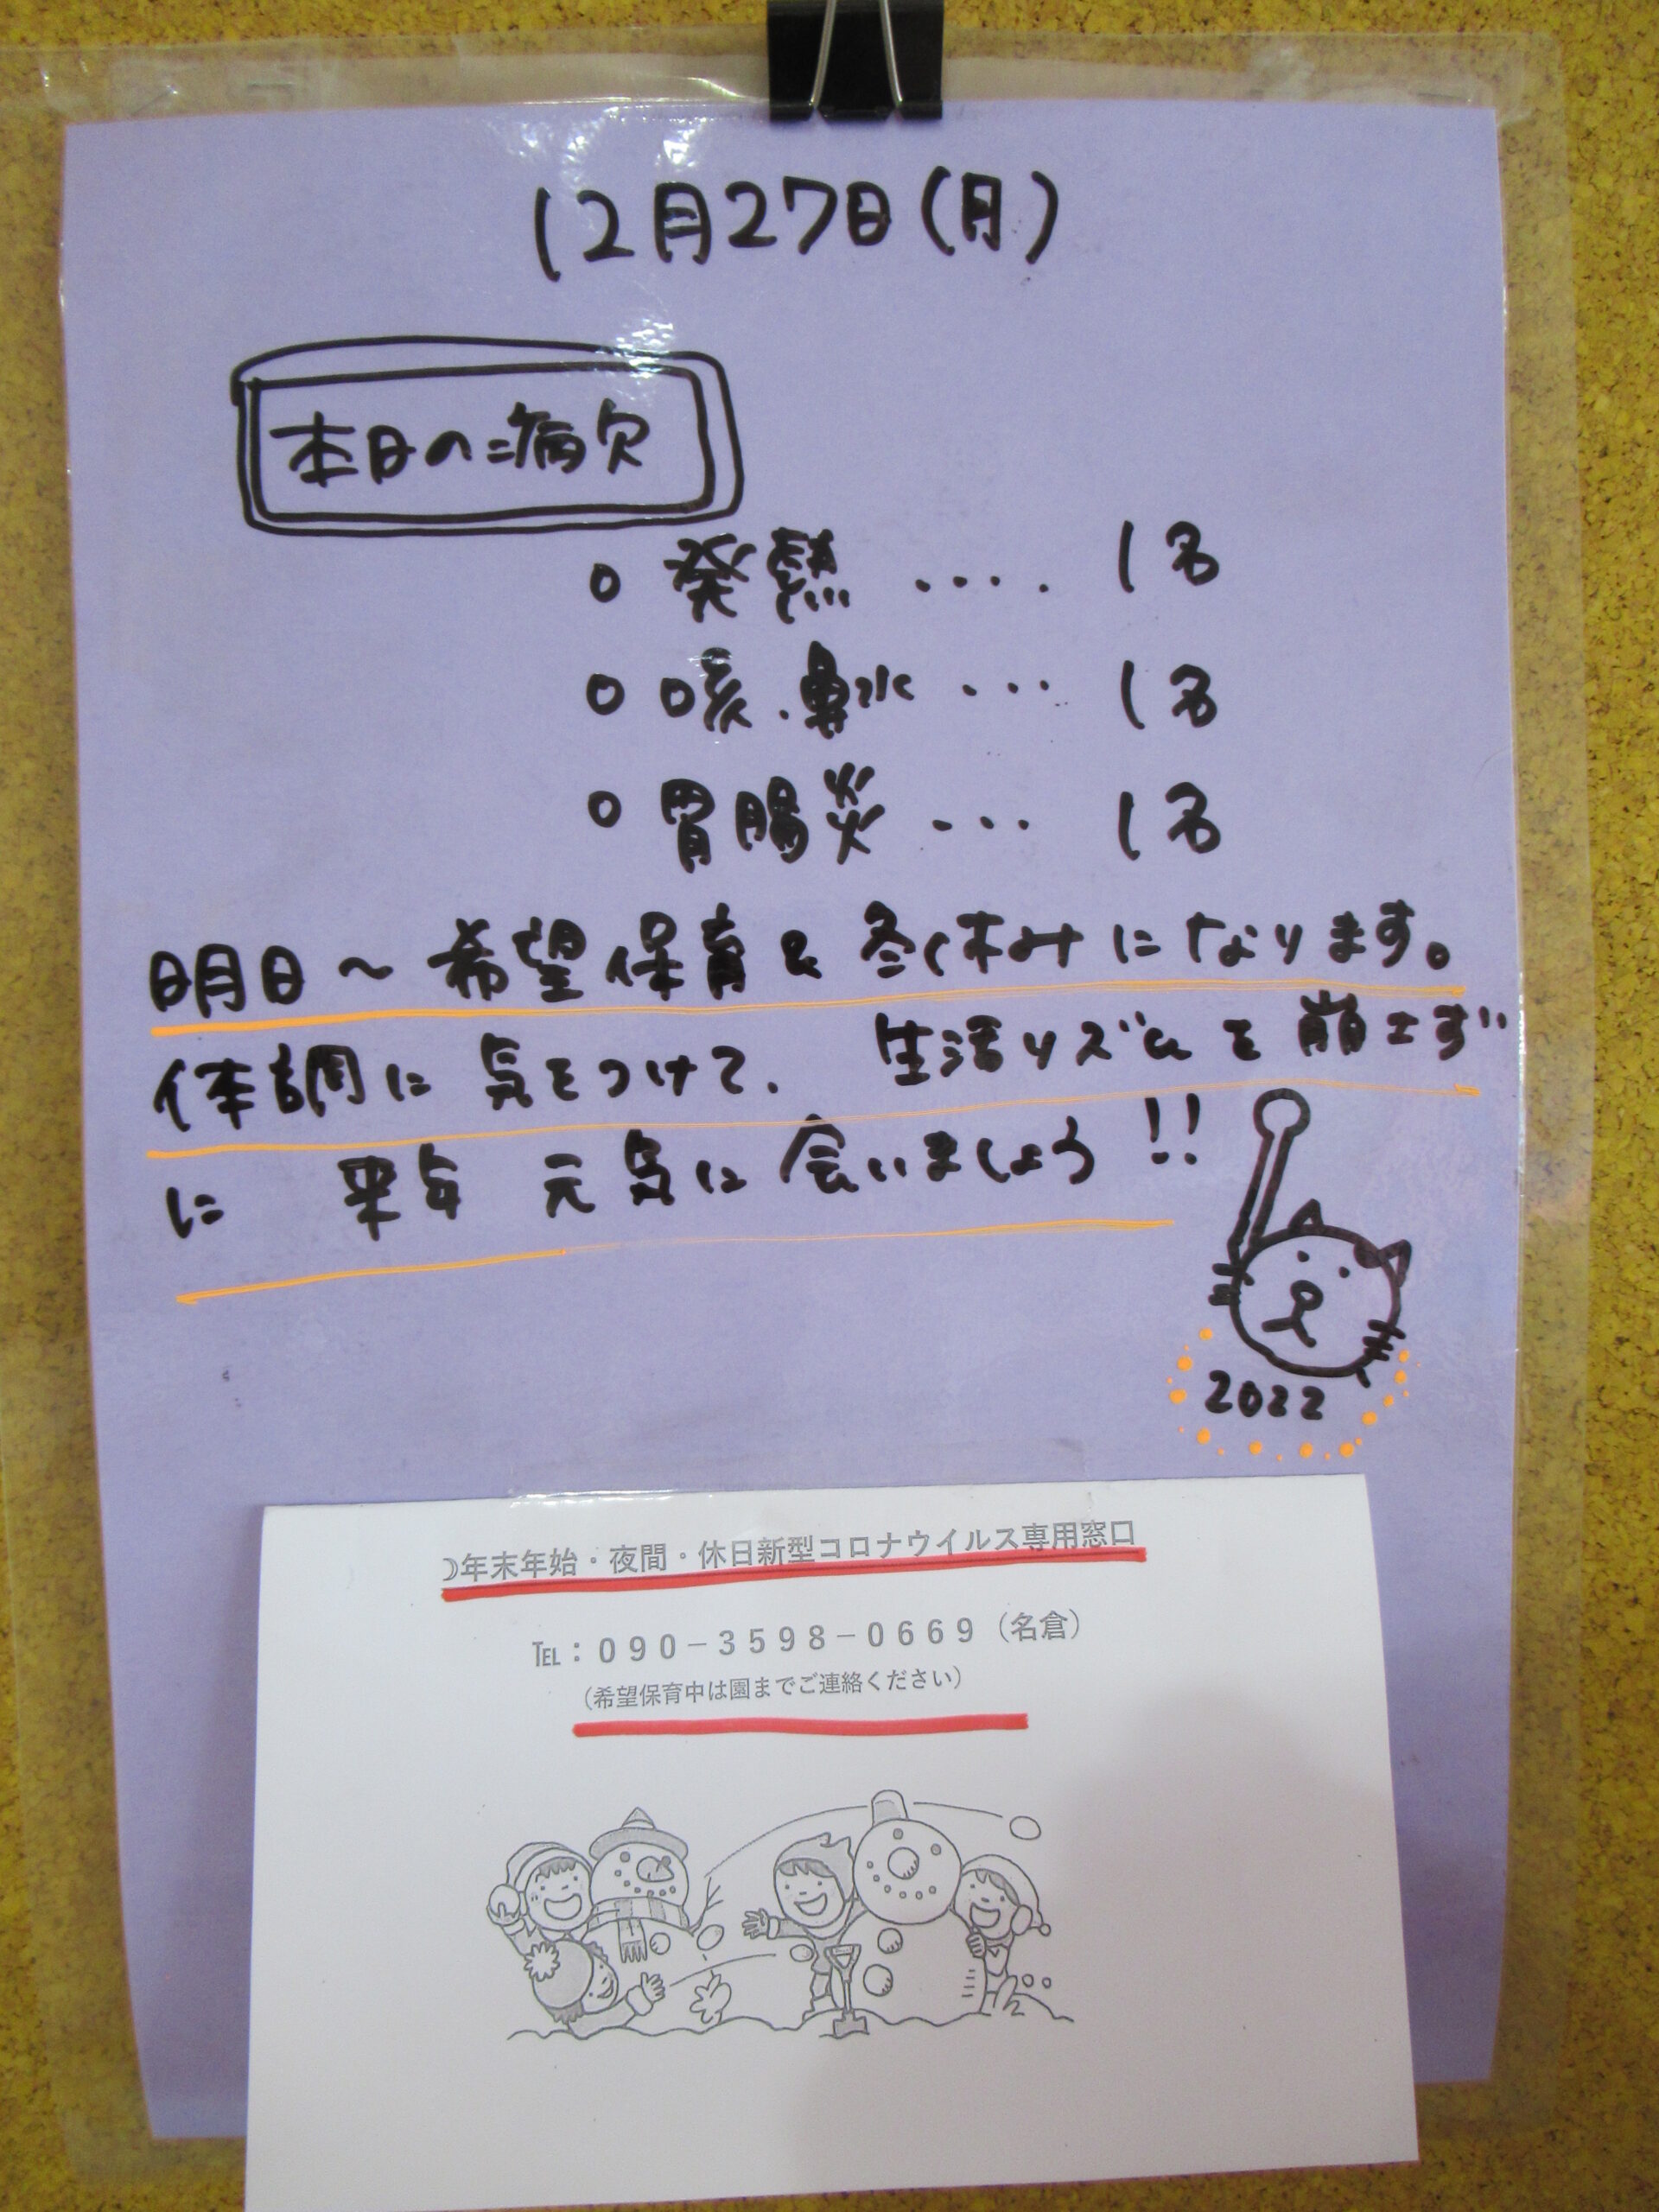 12月27日(月)
本日の病欠
○ 発熱 ‥‥ 1名
○ 咳.鼻水 … 1名
○ 胃腸炎 … 1名
明日～希望保育&冬休みになります。
体調に気をつけて、生活リズムを崩さず
に 来年 元気に会いましょう!!
2022
☽年末年始・夜間・休日新型コロナウイルス専用窓口
℡：０９０－３５９８－０６６９（名倉）
（希望保育中は園までご連絡ください）